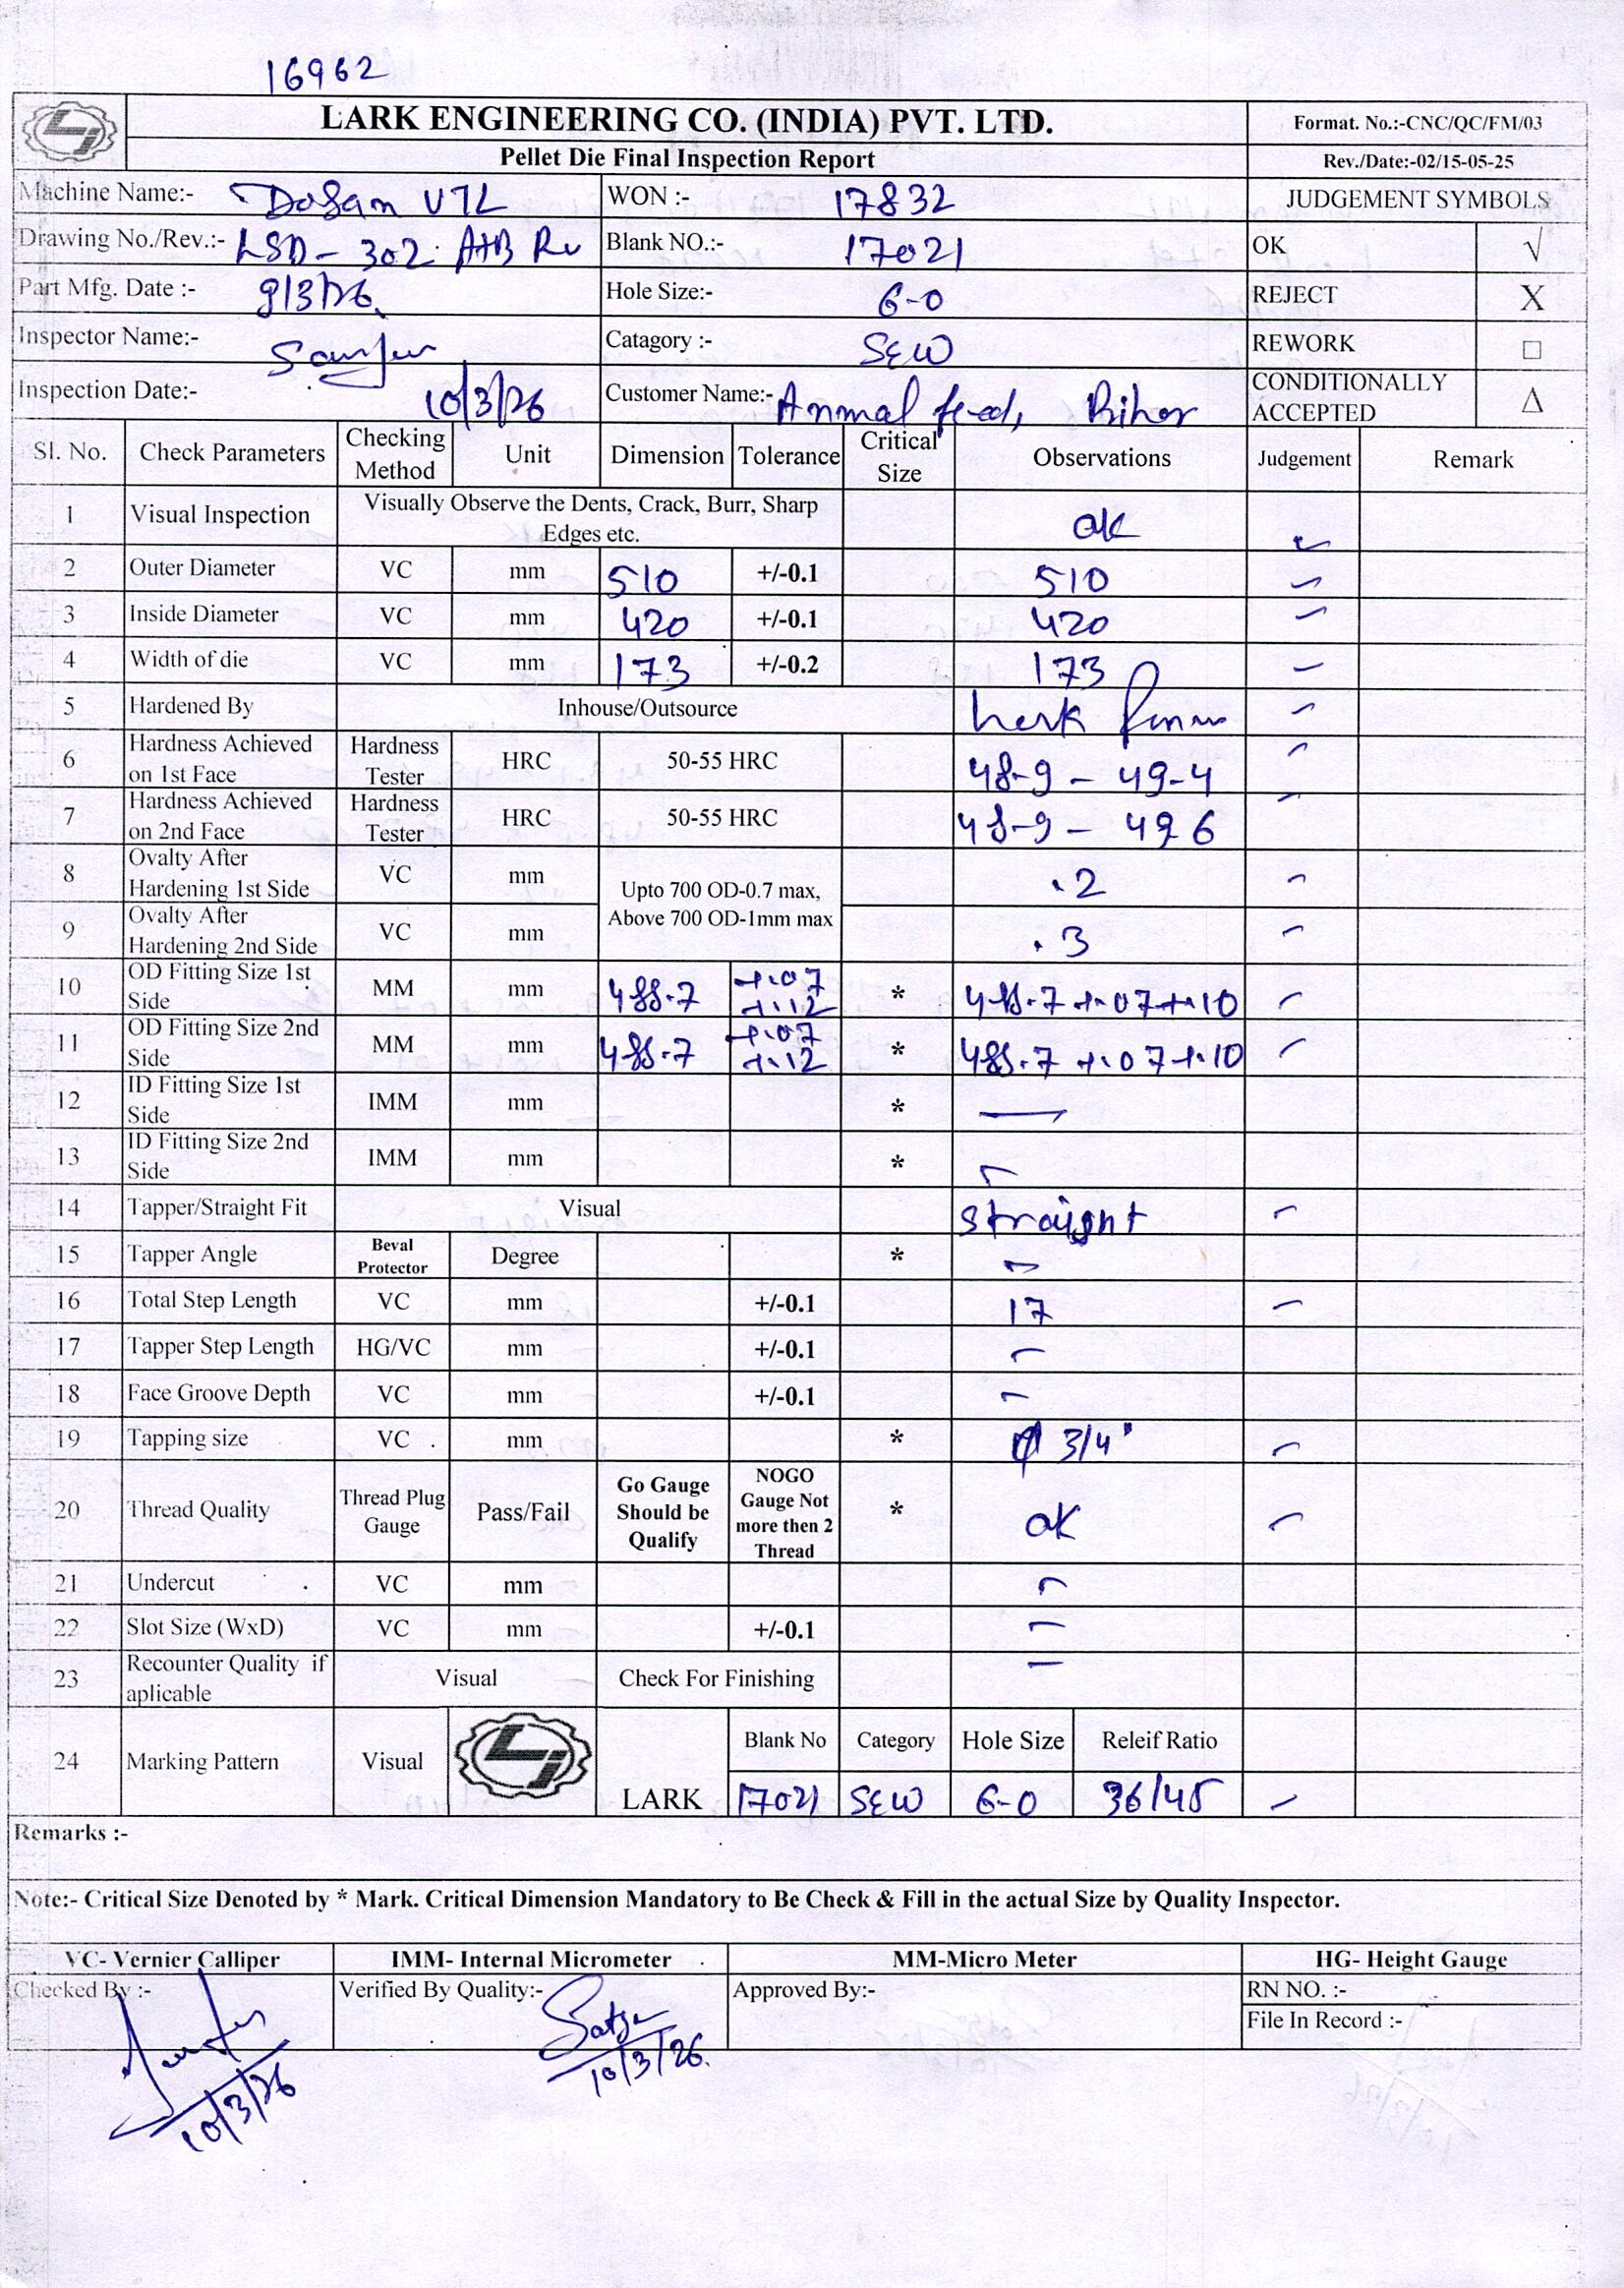 16962
LARK ENGINEERING CO. (INDIA) PVT. LTD. Format. No.:-CNC/QC/FM/03
Pellet Die Final Inspection Report Rev./Date:-02/15-05-25
Machine Name:- Dosan VTL WON :- 17832 JUDGEMENT SYMBOLS
Drawing No./Rev.:- LSD-302 Blank NO.:- 17021 OK √
Part Mfg. Date :- 9/3/26 Hole Size:- 6-0 REJECT X
Inspector Name:- Catagory :- SEW REWORK □
Inspection Date:- 10/3/26 Customer Name:- Anmal feed, Bihar CONDITIONALLY ACCEPTED Δ
Sl. No. Check Parameters Checking Method Unit Dimension Tolerance Critical Size Observations Judgement Remark
1 Visual Inspection Visually Observe the Dents, Crack, Burr, Sharp Edges etc. ok
2 Outer Diameter VC mm 510 +/-0.1 510
3 Inside Diameter VC mm 420 +/-0.1 420
4 Width of die VC mm 173 +/-0.2 173
5 Hardened By Inhouse/Outsource
6 Hardness Achieved on 1st Face Hardness Tester HRC 50-55 HRC 48-9 - 49-4
7 Hardness Achieved on 2nd Face Hardness Tester HRC 50-55 HRC 48-9 - 496
8 Ovalty After Hardening 1st Side VC mm Upto 700 OD-0.7 max, Above 700 OD-1mm max .2
9 Ovalty After Hardening 2nd Side VC mm .3
10 OD Fitting Size 1st Side MM mm 488.7 +.07 +.12 * 488.7 +.07 +.10
11 OD Fitting Size 2nd Side MM mm 488.7 +.07 +.12 * 488.7 +.07 +.10
12 ID Fitting Size 1st Side IMM mm * —
13 ID Fitting Size 2nd Side IMM mm * —
14 Tapper/Straight Fit Visual straight
15 Tapper Angle Beval Protector Degree * —
16 Total Step Length VC mm +/-0.1 17
17 Tapper Step Length HG/VC mm +/-0.1 —
18 Face Groove Depth VC mm +/-0.1 —
19 Tapping size VC mm * 3/4"
20 Thread Quality Thread Plug Gauge Pass/Fail Go Gauge Should be Qualify NOGO Gauge Not more then 2 Thread * ok
21 Undercut VC mm —
22 Slot Size (WxD) VC mm +/-0.1 —
23 Recounter Quality if aplicable Visual Check For Finishing —
24 Marking Pattern Visual LARK Blank No Category Hole Size Releif Ratio
17021 SEW 6-0 36/45
Remarks :-
Note:- Critical Size Denoted by * Mark. Critical Dimension Mandatory to Be Check & Fill in the actual Size by Quality Inspector.
VC- Vernier Calliper IMM- Internal Micrometer MM-Micro Meter HG- Height Gauge
Checked By :- Verified By Quality:- Approved By:- RN NO. :-
File In Record :-
10/3/26 10/3/26.